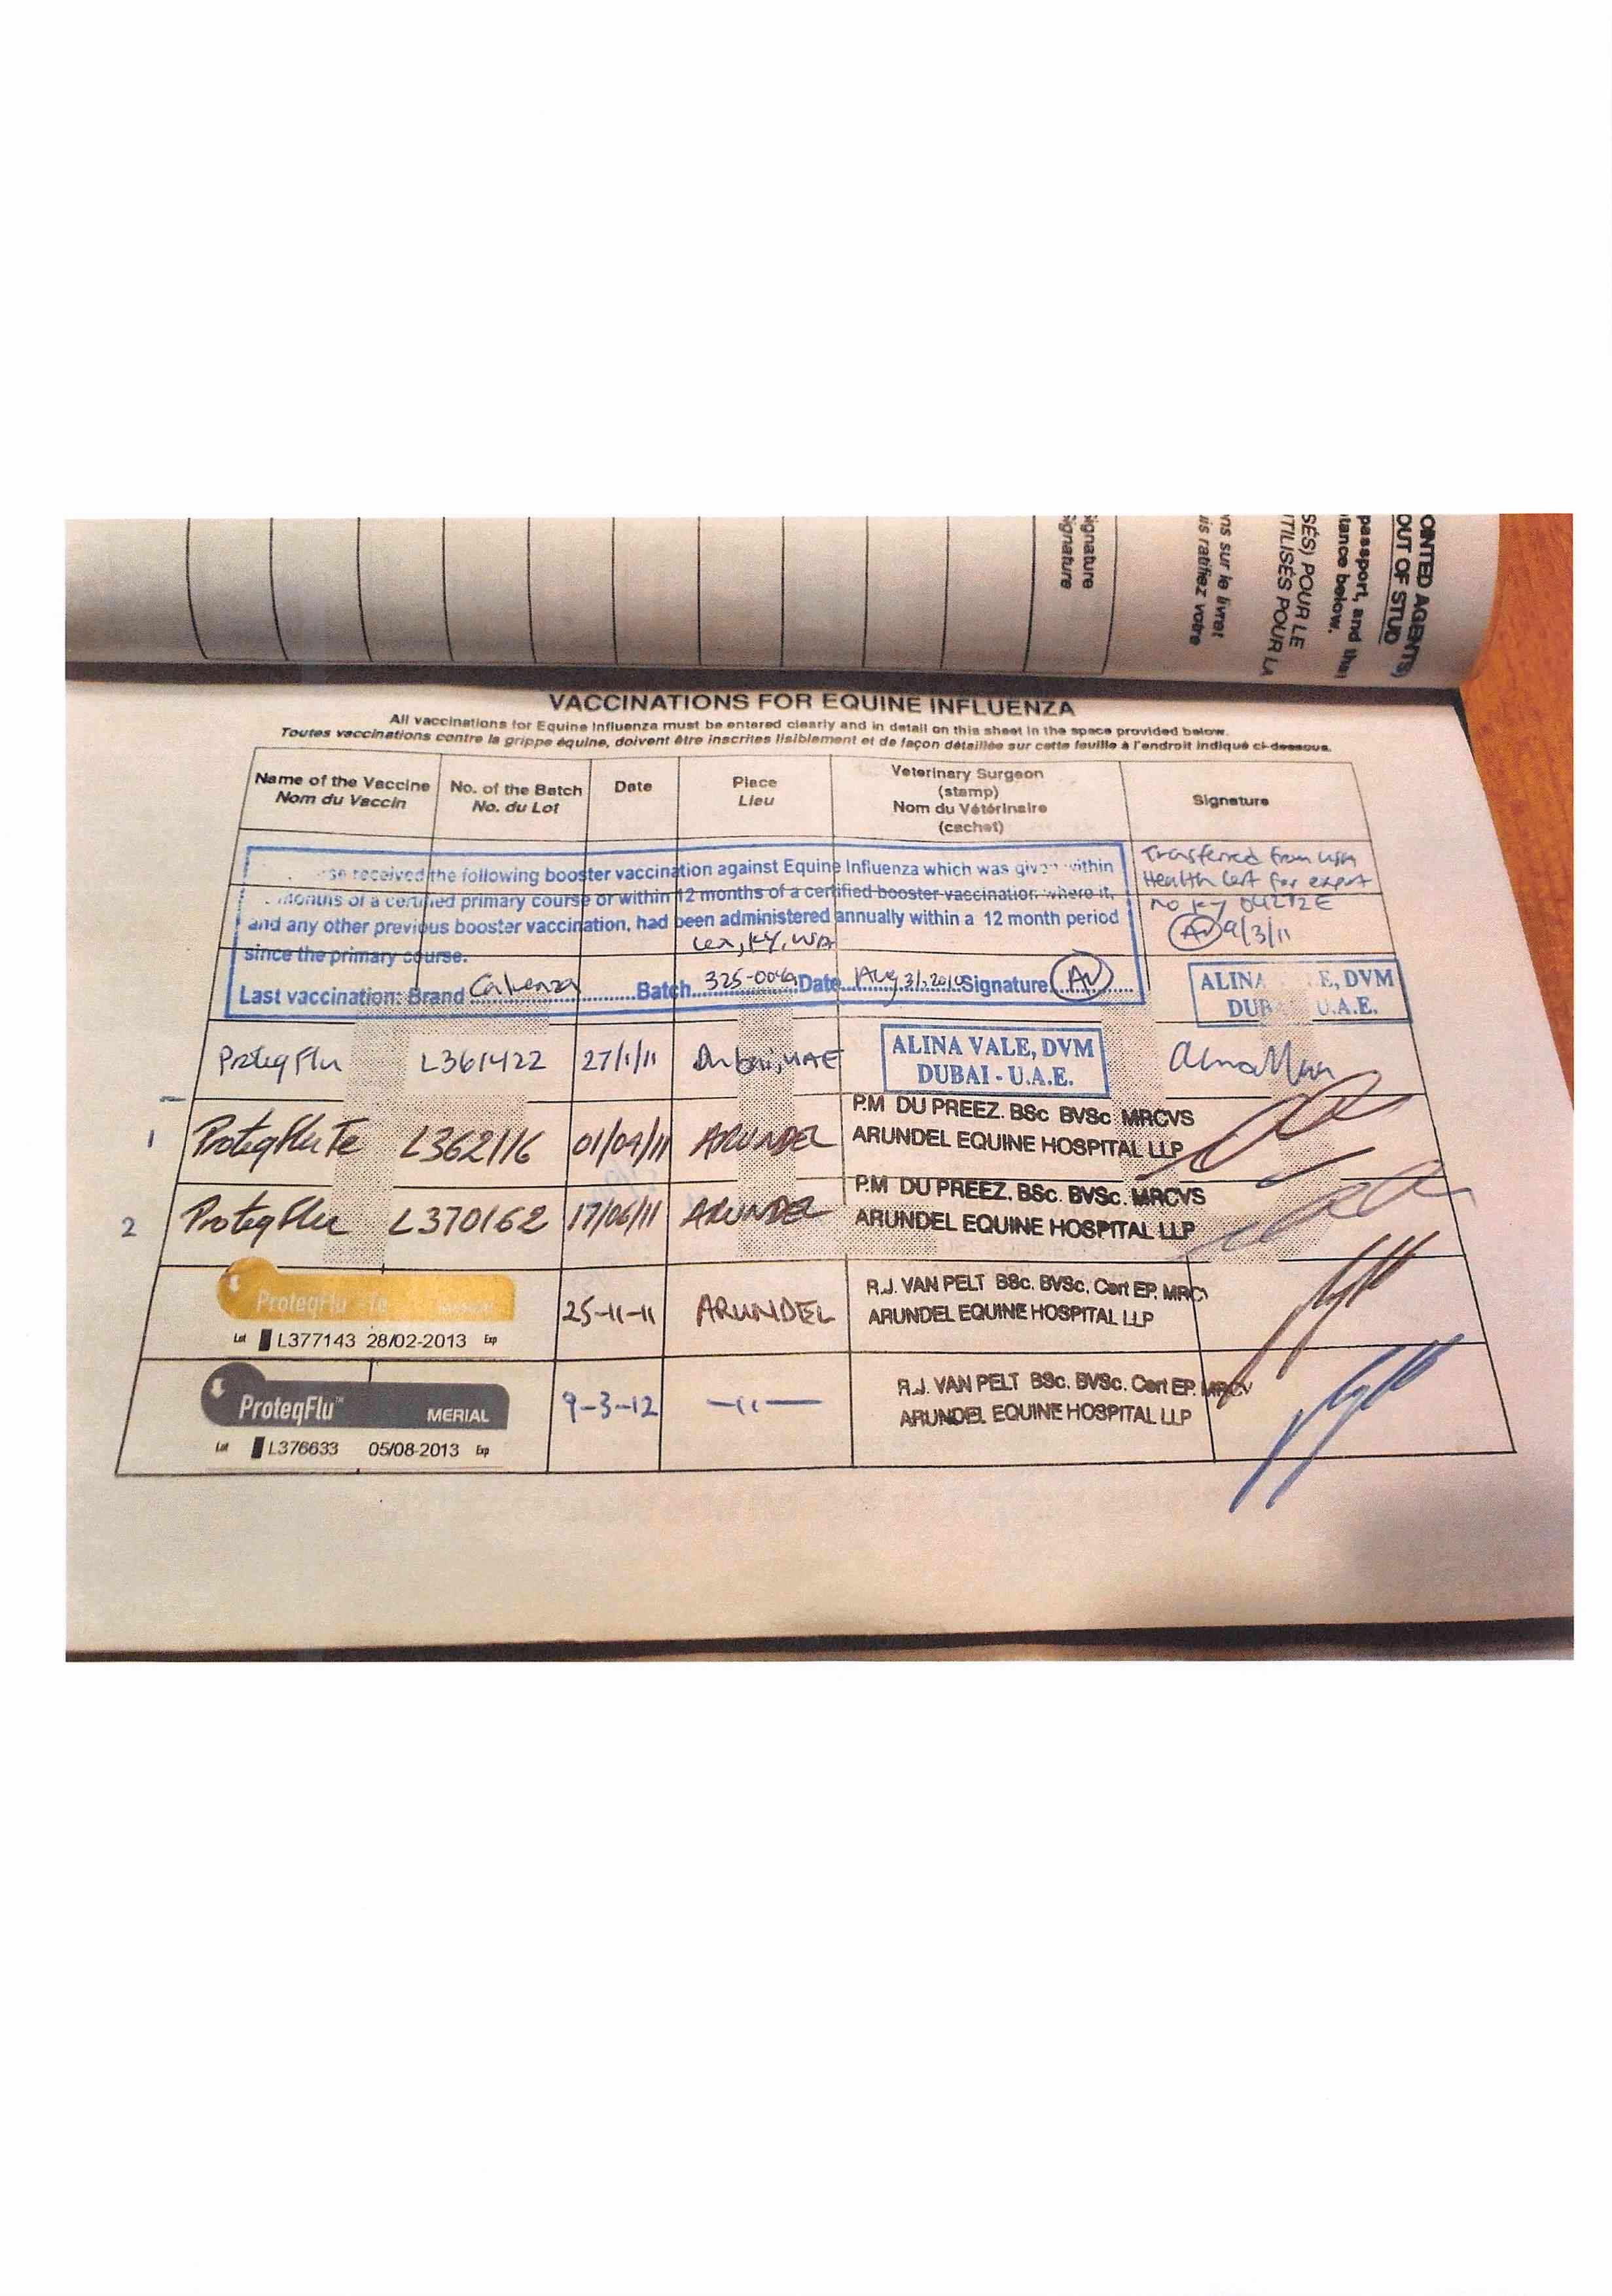 ignature
ignature
ns sur le livret
is ratifiez votre
SÉS) POUR LE
TILISÉS POUR LA
passport, and the
tance below.
OINTED AGENTS)
OUT OF STUD
VACCINATIONS FOR EQUINE INFLUENZA
All vaccinations for Equine Influenza must be entered clearly and in detail on this sheet in the space provided below.
Toutes vaccinations contre la grippe équine, doivent être inscrites lisiblement et de façon détaillée sur cette feuille à l'endroit indiqué ci-dessous.
Name of the Vaccine No. of the Batch Date Place Veterinary Surgeon Signature
Nom du Vaccin No. du Lot Lieu (stamp)
Nom du Vétérinaire
(cachet)
received the following booster vaccination against Equine Influenza which was given within
months of a certified primary course or within 12 months of a certified booster vaccination where it,
and any other previous booster vaccination, had been administered annually within a 12 month period
since the primary course.
Lex, KY, USA
Last vaccination: Brand Calvenza Batch 325-004a Date Aug 31, 2010 Signature AV
Transferred from USA
Health Cert for export
no KY
AV 9/3/11
ALINA E, DVM
DUB U.A.E.
ProteqFlu L361422 27/1/11 Dubai, UAE ALINA VALE, DVM
DUBAI - U.A.E.
1 ProteqFlu Te L362116 01/04/11 ARUNDEL P.M DU PREEZ. BSc BVSc MRCVS
ARUNDEL EQUINE HOSPITAL LLP
2 ProteqFlu L370162 17/06/11 ARUNDEL P.M DU PREEZ. BSc. BVSc. MRCVS
ARUNDEL EQUINE HOSPITAL LLP
ProteqFlu - Te MERIAL 25-11-11 ARUNDEL R.J. VAN PELT BSc. BVSc. Cert EP. MRC
Lot L377143 28/02-2013 Exp ARUNDEL EQUINE HOSPITAL LLP
ProteqFlu™ MERIAL 9-3-12 —11— R.J. VAN PELT BSc. BVSc. Cert EP. MRCV
Lot L376633 05/08-2013 Exp ARUNDEL EQUINE HOSPITAL LLP